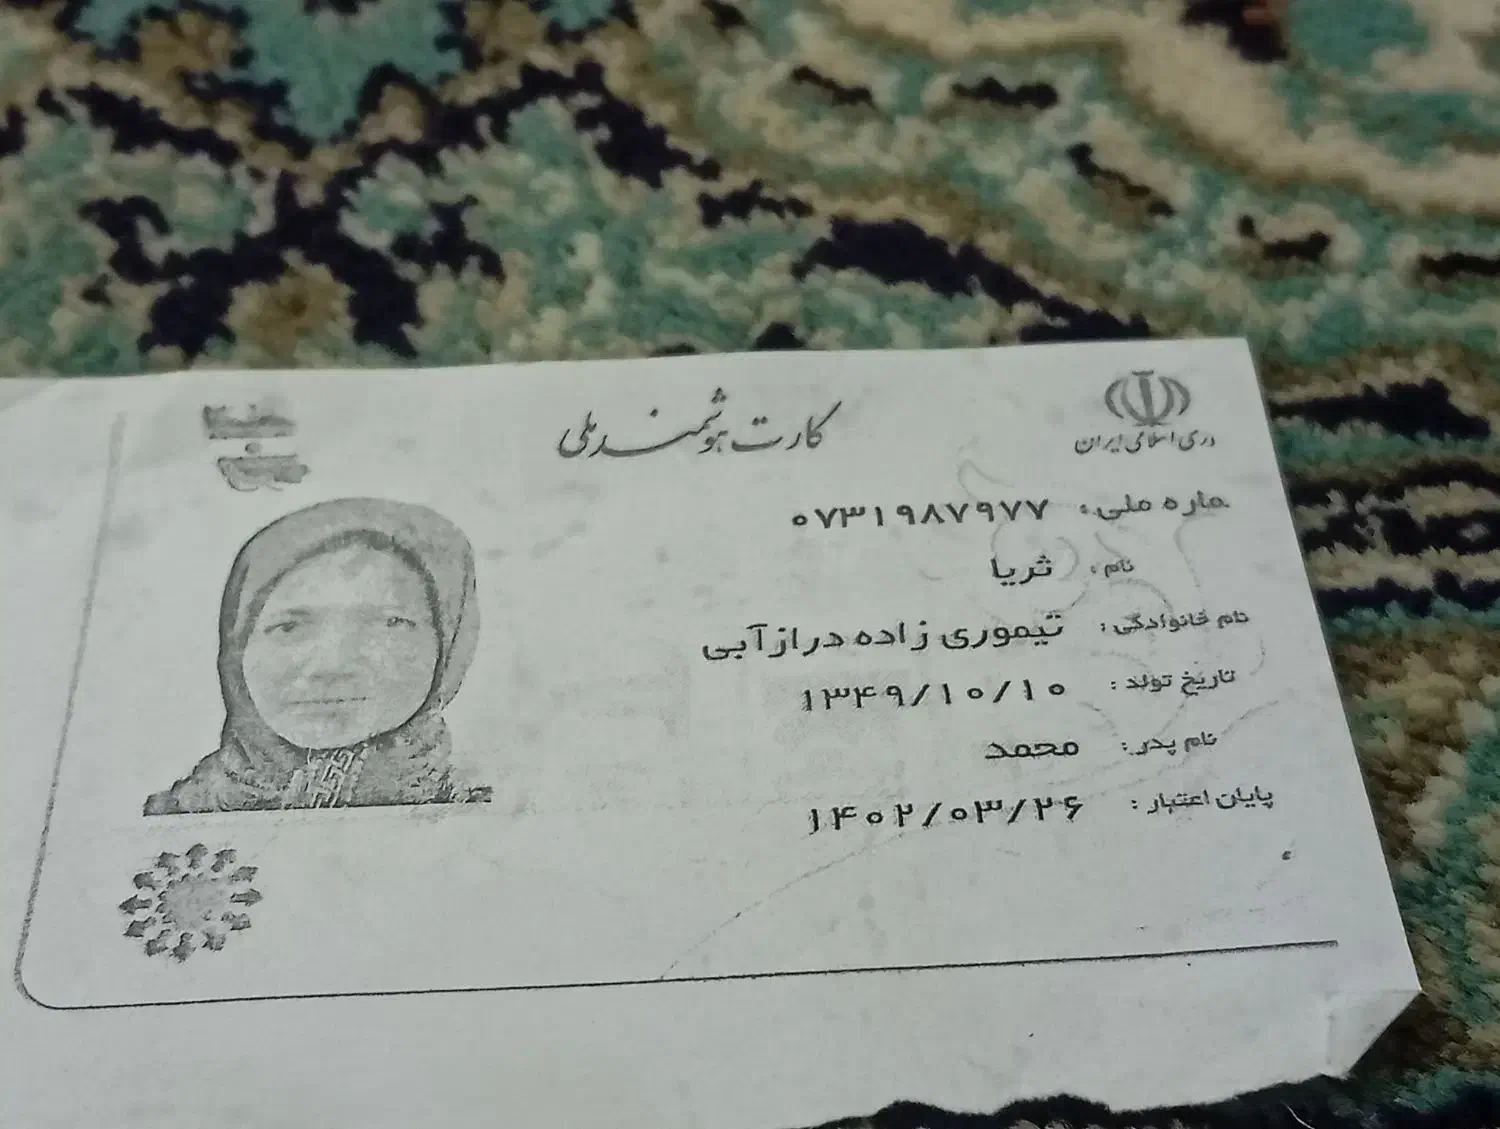 کارت هوشمند ملی
دری اسلامی ایران
ماره ملی: ۰۷۳۱۹۸۷۹۷۷
نام: ثریا
نام خانوادگی: تیموری زاده درازآبی
تاریخ تولد: ۱۳۴۹/۱۰/۱۰
نام پدر: محمد
پایان اعتبار: ۱۴۰۲/۰۳/۲۶